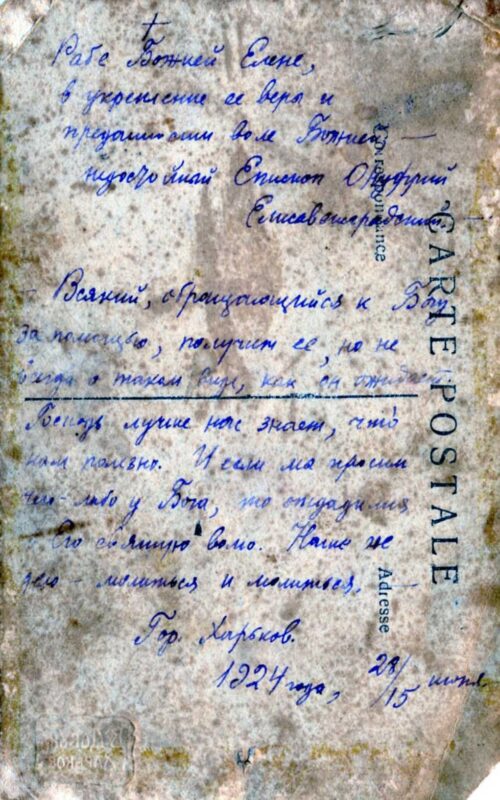 Рабе Божией Елене,
в укрепление ее веры и
преданности воле Божией —
недостойный Епископ Онуфрий
Елисаветградский.
Всякий, обращающийся к Богу
за помощью, получит ее, но не
всегда в таком виде, как он ожидает
Господь лучше нас знает, что
нам полезно. И если мы просим
чего-либо у Бога, то
Его святую волю. Наше же
дело – молиться и молиться.
Гор. Харьков.
1924 года, 28/15 июня
CARTE POSTALE
Correspondance
Adresse